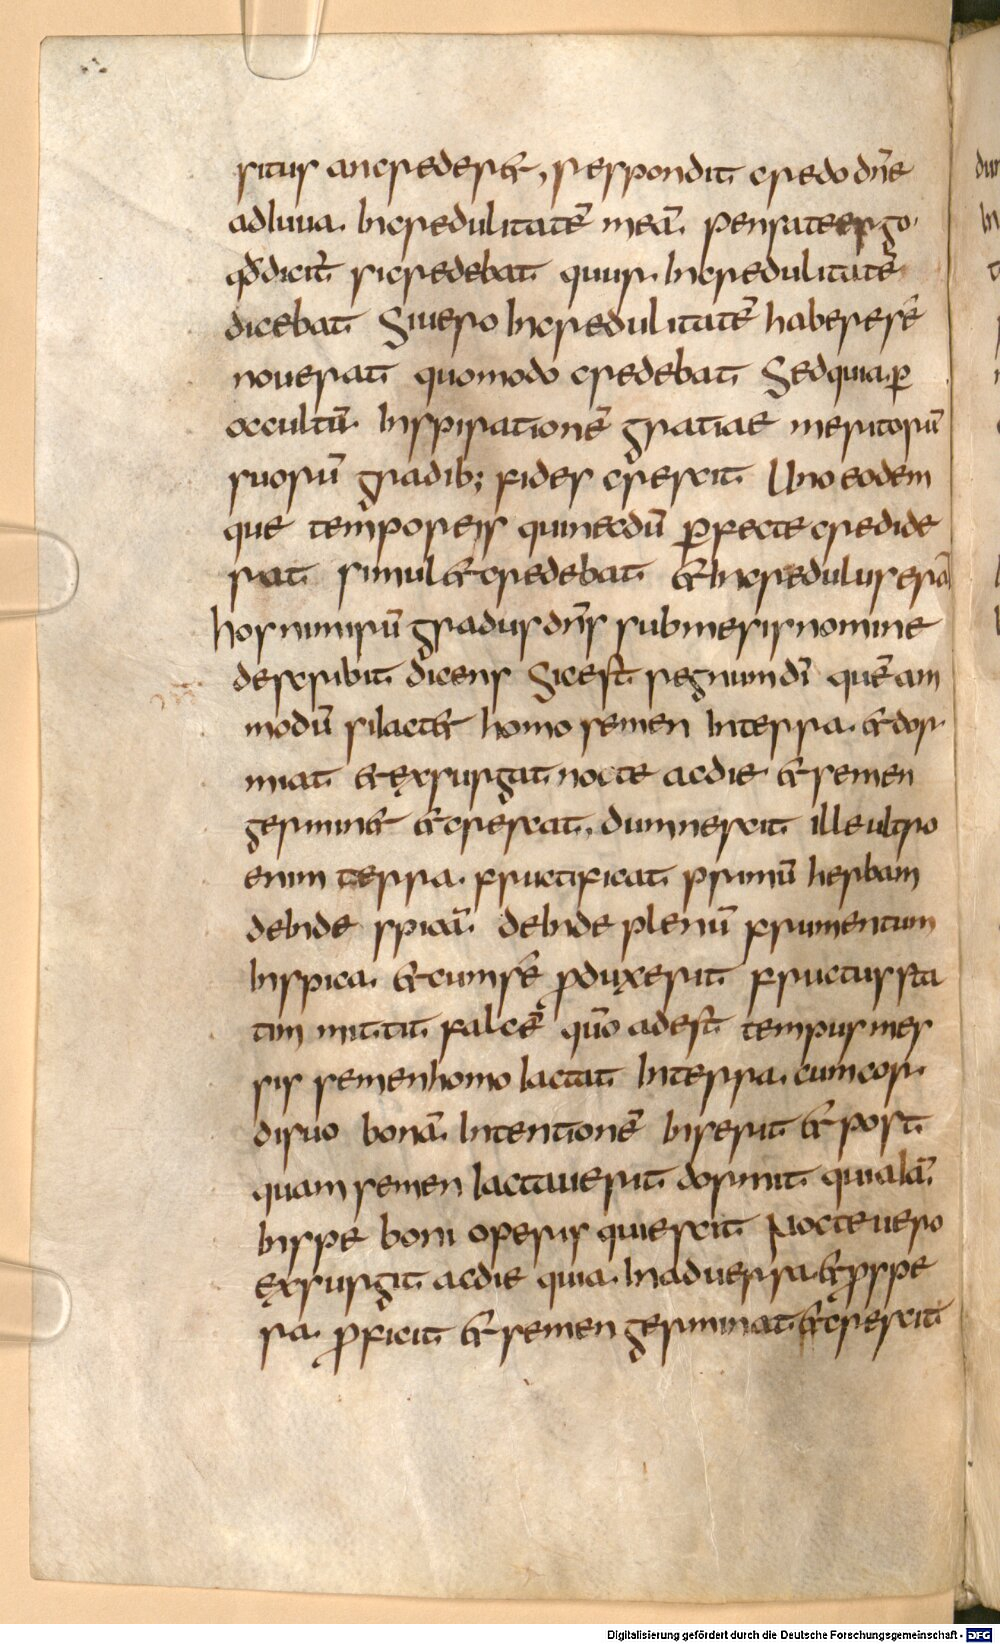 situs an crederet, respondit credo dn̄e
adiuua. Incredulitatē meā. pensate ergo.
qđ dicit̄ si credebat quur. Incredulitatē
dicebat Si uero Incredulitatē habere sē
nouerat quomodo credebat Sed quia. ꝑ
occultū. Inspirationē gratiae meritorū
suorū gradib; fides crescit Uno eodem
que temporeis qui necdū ꝑfecte credide
rat simul & credebat & Incredulus erā
hos nimirū gradus dn̄s sub messis nomine
describit dicens Sic est regnum dī quē am
modū si iact& homo semen In terra. & dor
miat & exsurgat nocte ac die & semen
germin& & crescat, dum nescit ille ultro
enim terra. fructificat primū herbam
deinde spicā. deinde plenū frumentum
In spica. & cum sē ꝓduxerit fructus sta
tim mittit falcē qūo adest tempus mes
sis semen homo iactat In terra. cum cor
di suo bonā. Intentionē Inserit & post
quam semen iactauerit dormit quia iā.
In spe boni operis quiescit Nocte uero
exsurgit ac die quia. In aduersa. & ꝓspe
ra ꝓficit & semen germinat & crescit
Digitalisierung gefördert durch die Deutsche Forschungsgemeinschaft - DFG